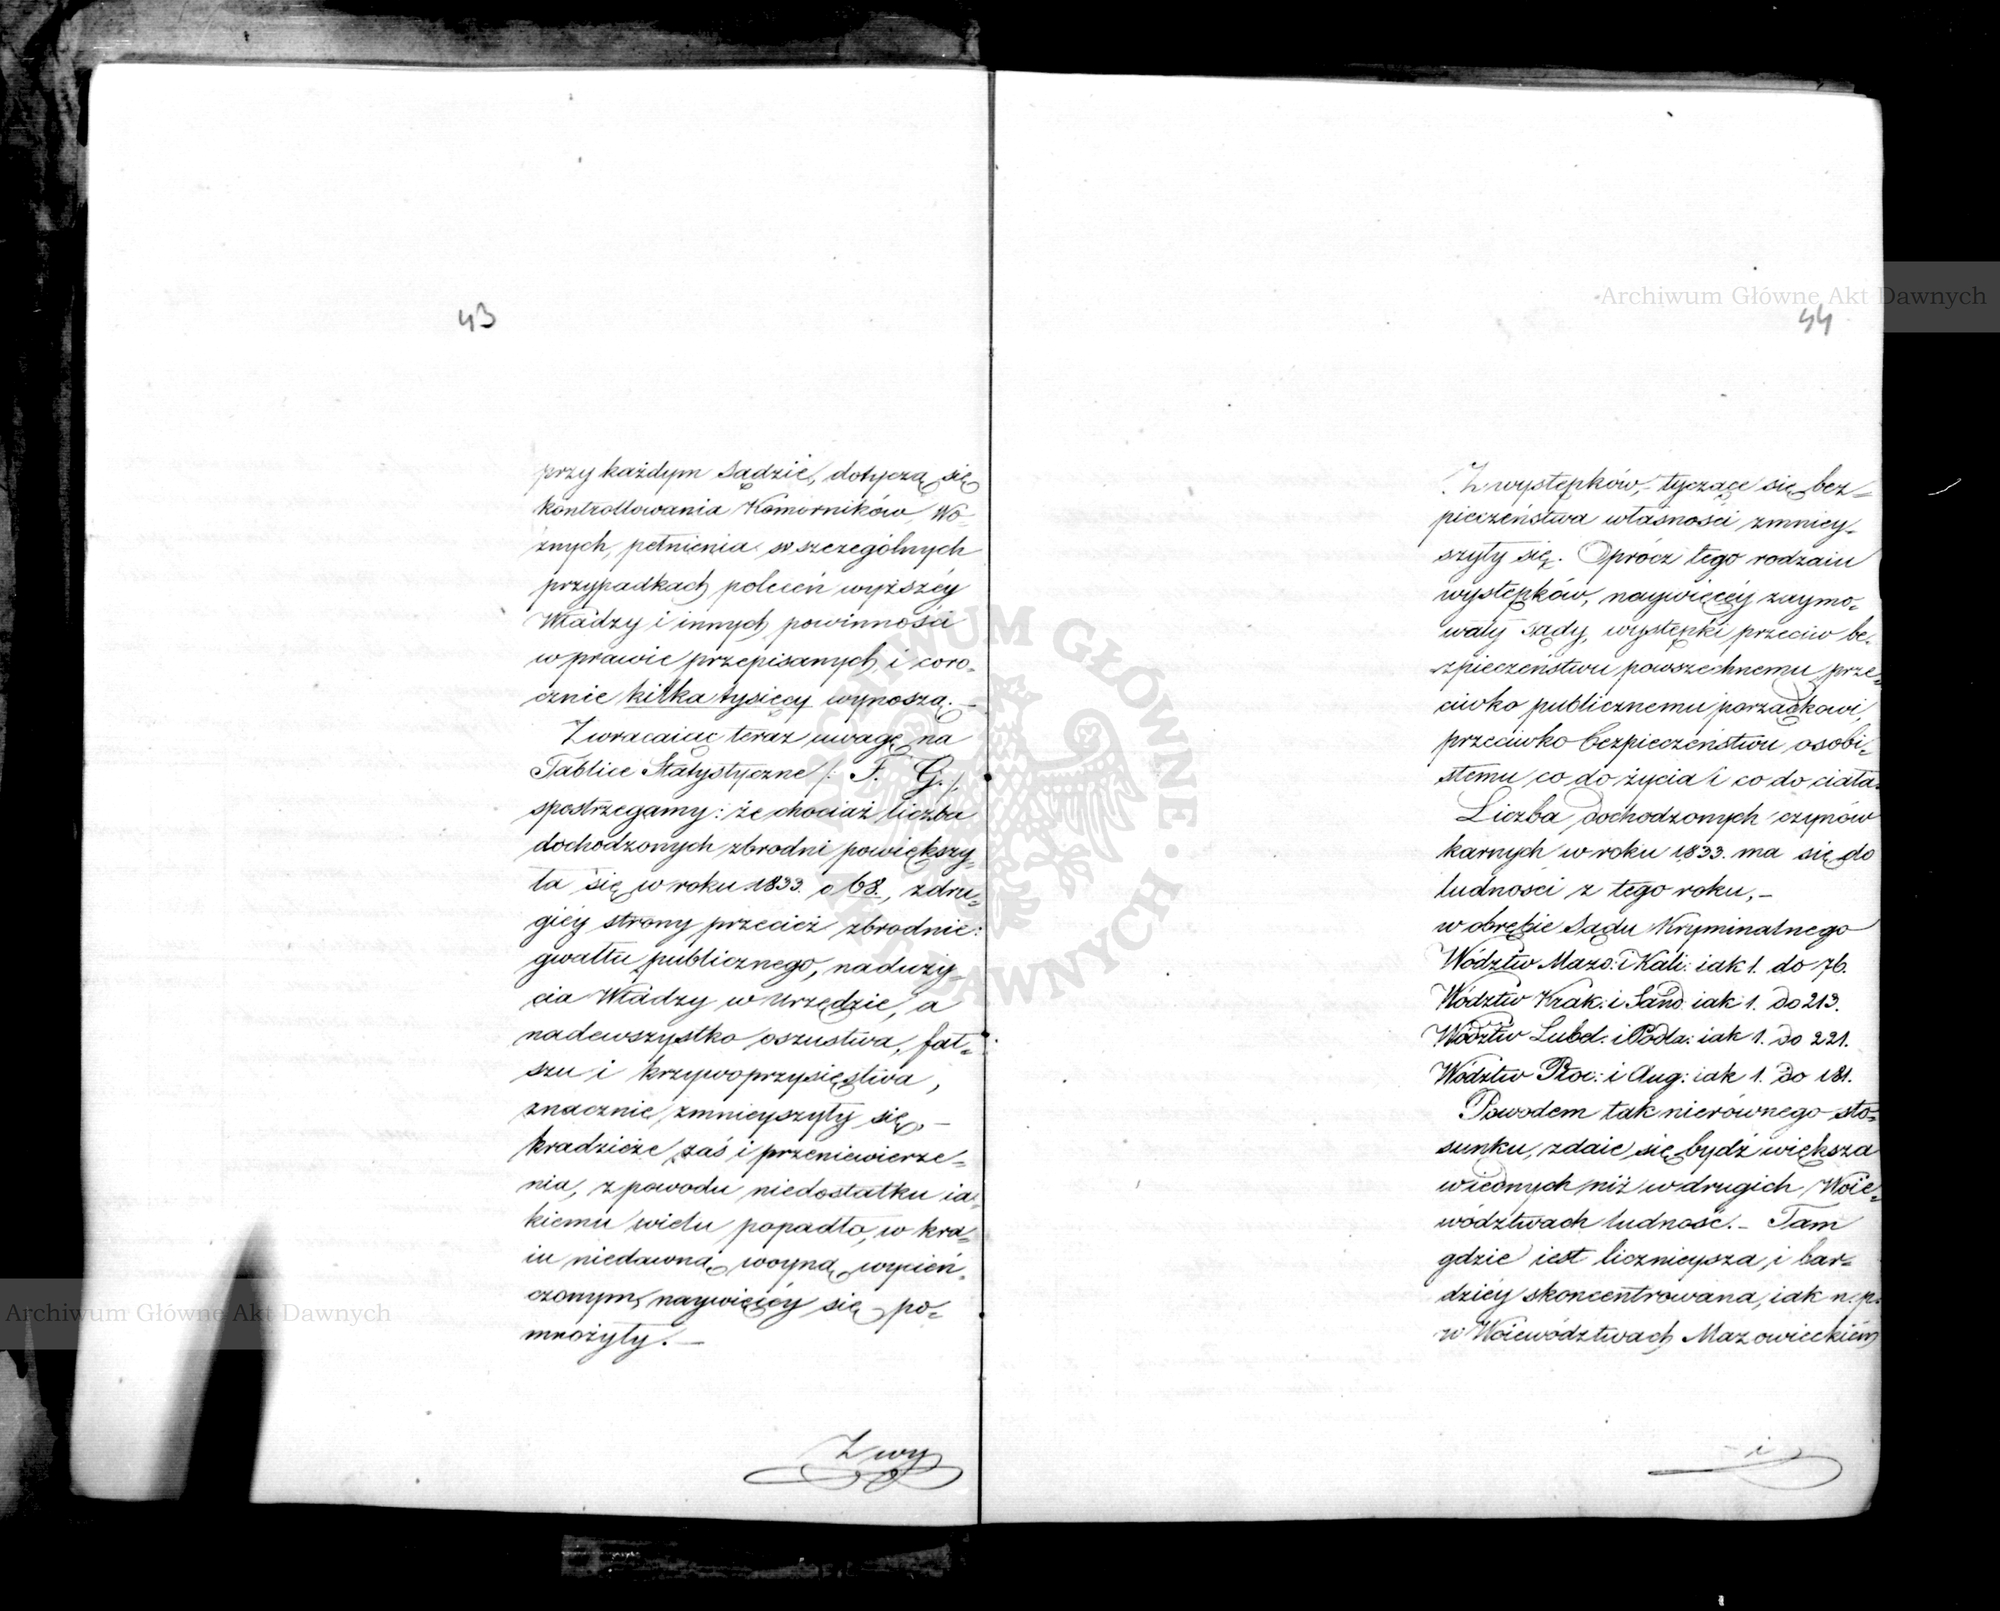 43
przy każdym Sądzie, dotyczą się
kontrollowania Komorników, Wo-
źnych, pełnienia w szczególnych
przypadkach poleceń wyższéy
Władzy i innych powinności
w prawie przepisanych, i coro-
cznie kilka tysięcy wynoszą. —
Zwracaiąc teraz uwagę na
Tablice Statystyczne /: F. G. :/
spostrzegamy: że chociaż liczba
dochodzonych zbrodni powiększy-
ła się w roku 1833. o 68., z dru-
giéy strony przecież zbrodnie:
gwałtu publicznego, naduży-
cia Władzy w Urzędzie, a
nadewszystko oszustwa, fał-
szu i krzywoprzysięstwa,
znacznie zmnieyszyły się, —
kradzieże zaś i przeniewierze-
nia, z powodu niedostatku ia-
kiemu wielu popadło, w kra-
iu niedawną woyną wycień-
czonym, naywięcéy się po-
mnożyły. —
Z wy
44
Z występków, tyczące się bez-
pieczeństwa własności zmniey-
szyły się. Oprócz tego rodzaiu
występków, naywięcéy zaymo-
wały Sądy, występki przeciw be-
zpieczeństwu powszechnemu, prze-
ciwko publicznemu porządkowi,
przeciwko bezpieczeństwu osobi-
stemu co do życia i co do ciała.
Liczba dochodzonych czynów
karnych w roku 1833. ma się do
ludności z tego roku, —
w obrębie Sądu Kryminalnego
Wództw Mazo: i Kali: iak 1. do 76.
Wództw Krak: i Sand: iak 1. do 213.
Wództw Lubel: i Podla: iak 1. do 221.
Wództw Płoc: i Aug: iak 1. do 181.
Powodem tak nierównego sto-
sunku, zdaie się bydź większa
w iednych niż w drugich Woie-
wództwach ludność. — Tam
gdzie iest licznieysza, i bar-
dziéy skoncentrowana, iak n. p.
w Woiewództwach Mazowieckiém
i
Archiwum Główne Akt Dawnych
Archiwum Główne Akt Dawnych
ARCHIWUM GŁÓWNE AKT DAWNYCH